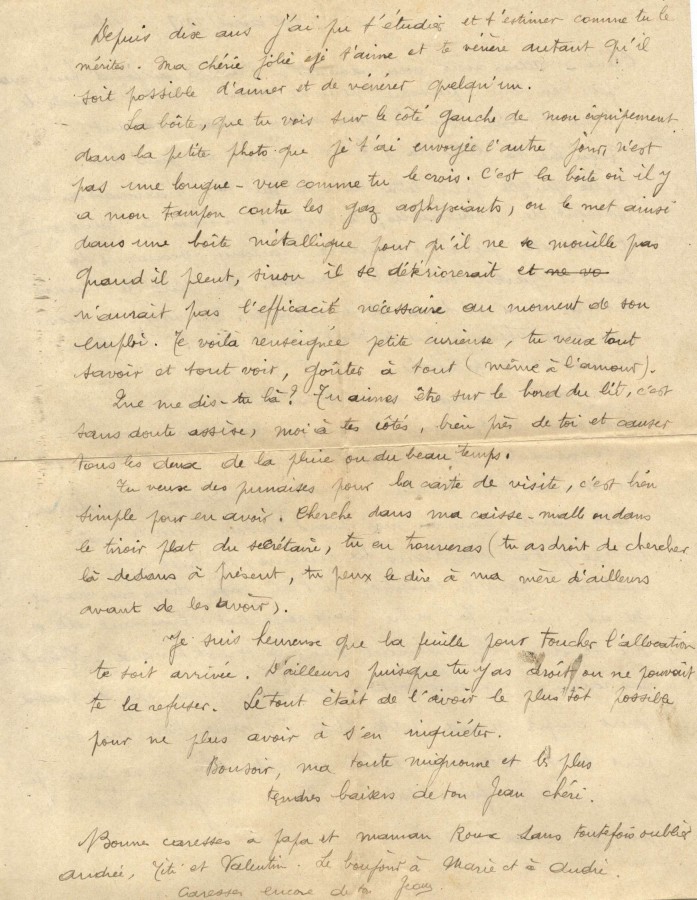 Depuis dix ans j'ai pu t'étudier et t'estimer comme tu le
mérites. Ma chérie jolie je t'aime et te vénère autant qu'il
soit possible d'aimer et de vénérer quelqu'un.
La boîte, que tu vois sur le côté gauche de mon équipement
dans la petite photo que je t'ai envoyée l'autre jour, n'est
pas une longue-vue comme tu le crois. C'est la boîte où il y
a mon tampon contre les gaz asphyxiants, on le met ainsi
dans une boîte métallique pour qu'il ne se mouille pas
quand il pleut, sinon il se détériorerait et ne
n'aurait pas l'efficacité nécessaire au moment de son
emploi. Te voilà renseignée petite curieuse, tu veux tout
savoir et tout voir, goûter à tout (même à l'amour).
Que me dis-tu là? Tu aimes être sur le bord du lit, c'est
sans doute assise, moi à tes côtés, bien près de toi et causer
tous les deux de la pluie ou du beau temps.
Tu veux des punaises pour la carte de visite, c'est bien
simple pour en avoir. Cherche dans ma caisse-malle ou dans
le tiroir plat du secrétaire, tu en trouveras (tu as droit de chercher
là-dedans à présent, tu peux le dire à ma mère d'ailleurs
avant de les avoir).
Je suis heureuse que la feuille pour toucher l'allocation
te soit arrivée. D'ailleurs puisque tu y as droit on ne pouvait
te la refuser. Le tout était de l'avoir le plus tôt possible
pour ne plus avoir à s'en inquiéter.
Bonsoir, ma toute mignonne et les plus
tendres baisers de ton Jean chéri.
Bonnes caresses à papa et maman Roux sans toutefois oublier
Andrée, Titi et Valentin. Le bonjour à Marie et à André.
Caresses encore de ton Jean.